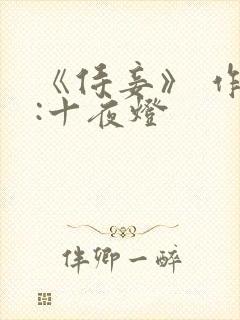 《侍妾》 作
:十夜燈
伴卿一醉